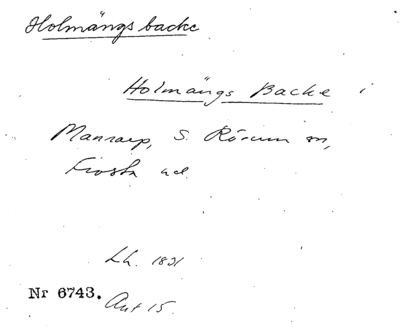 Holmängs backe
Holmängs Backe i
Mansarp, S. Rörum sn,
Frosta hd.
Lh. 1831
Nr 6743. Akt 15.